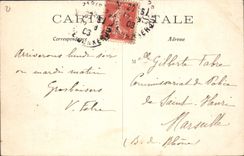 CARTE POSTALE
Correspondance
Adresse
Arriverons lundi soir
ou mardi matin
Gros baisers
V. Fabre
Mlle Gilberte Fabre
Commissariat de Police
de Saint
Marseille
(B. du Rhône)